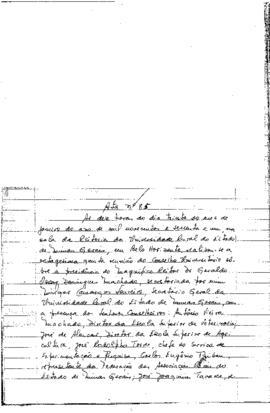 Ata nº 85
As dez horas do dia trinta do mês de
janeiro do ano de mil novecentos e sessenta e um, na
sala da Reitoria da Universidade Rural do Estado
de Minas Gerais, em Belo Horizonte, realizou-se a
octogésima quinta reunião do Conselho Universitário so-
bre a presidência do Magnífico Reitor Dr. Geraldo
Oscar Domingues Machado, secretariada por mim
Secretário Geral da
Universidade Rural do Estado de Minas Gerais, com
a presença dos Senhores Conselheiros: Antônio Vieira
Machado, Diretor da Escola Superior de Veterinária,
José de Alencar, Diretor da Escola Superior de Agri-
cultura, José Rodolpho Torres, Chefe do Serviço de
Experimentação e Pesquisa, Carlos Eugênio
representante da Federação das Associações Rurais do
Estado de Minas Gerais, José Joaquim